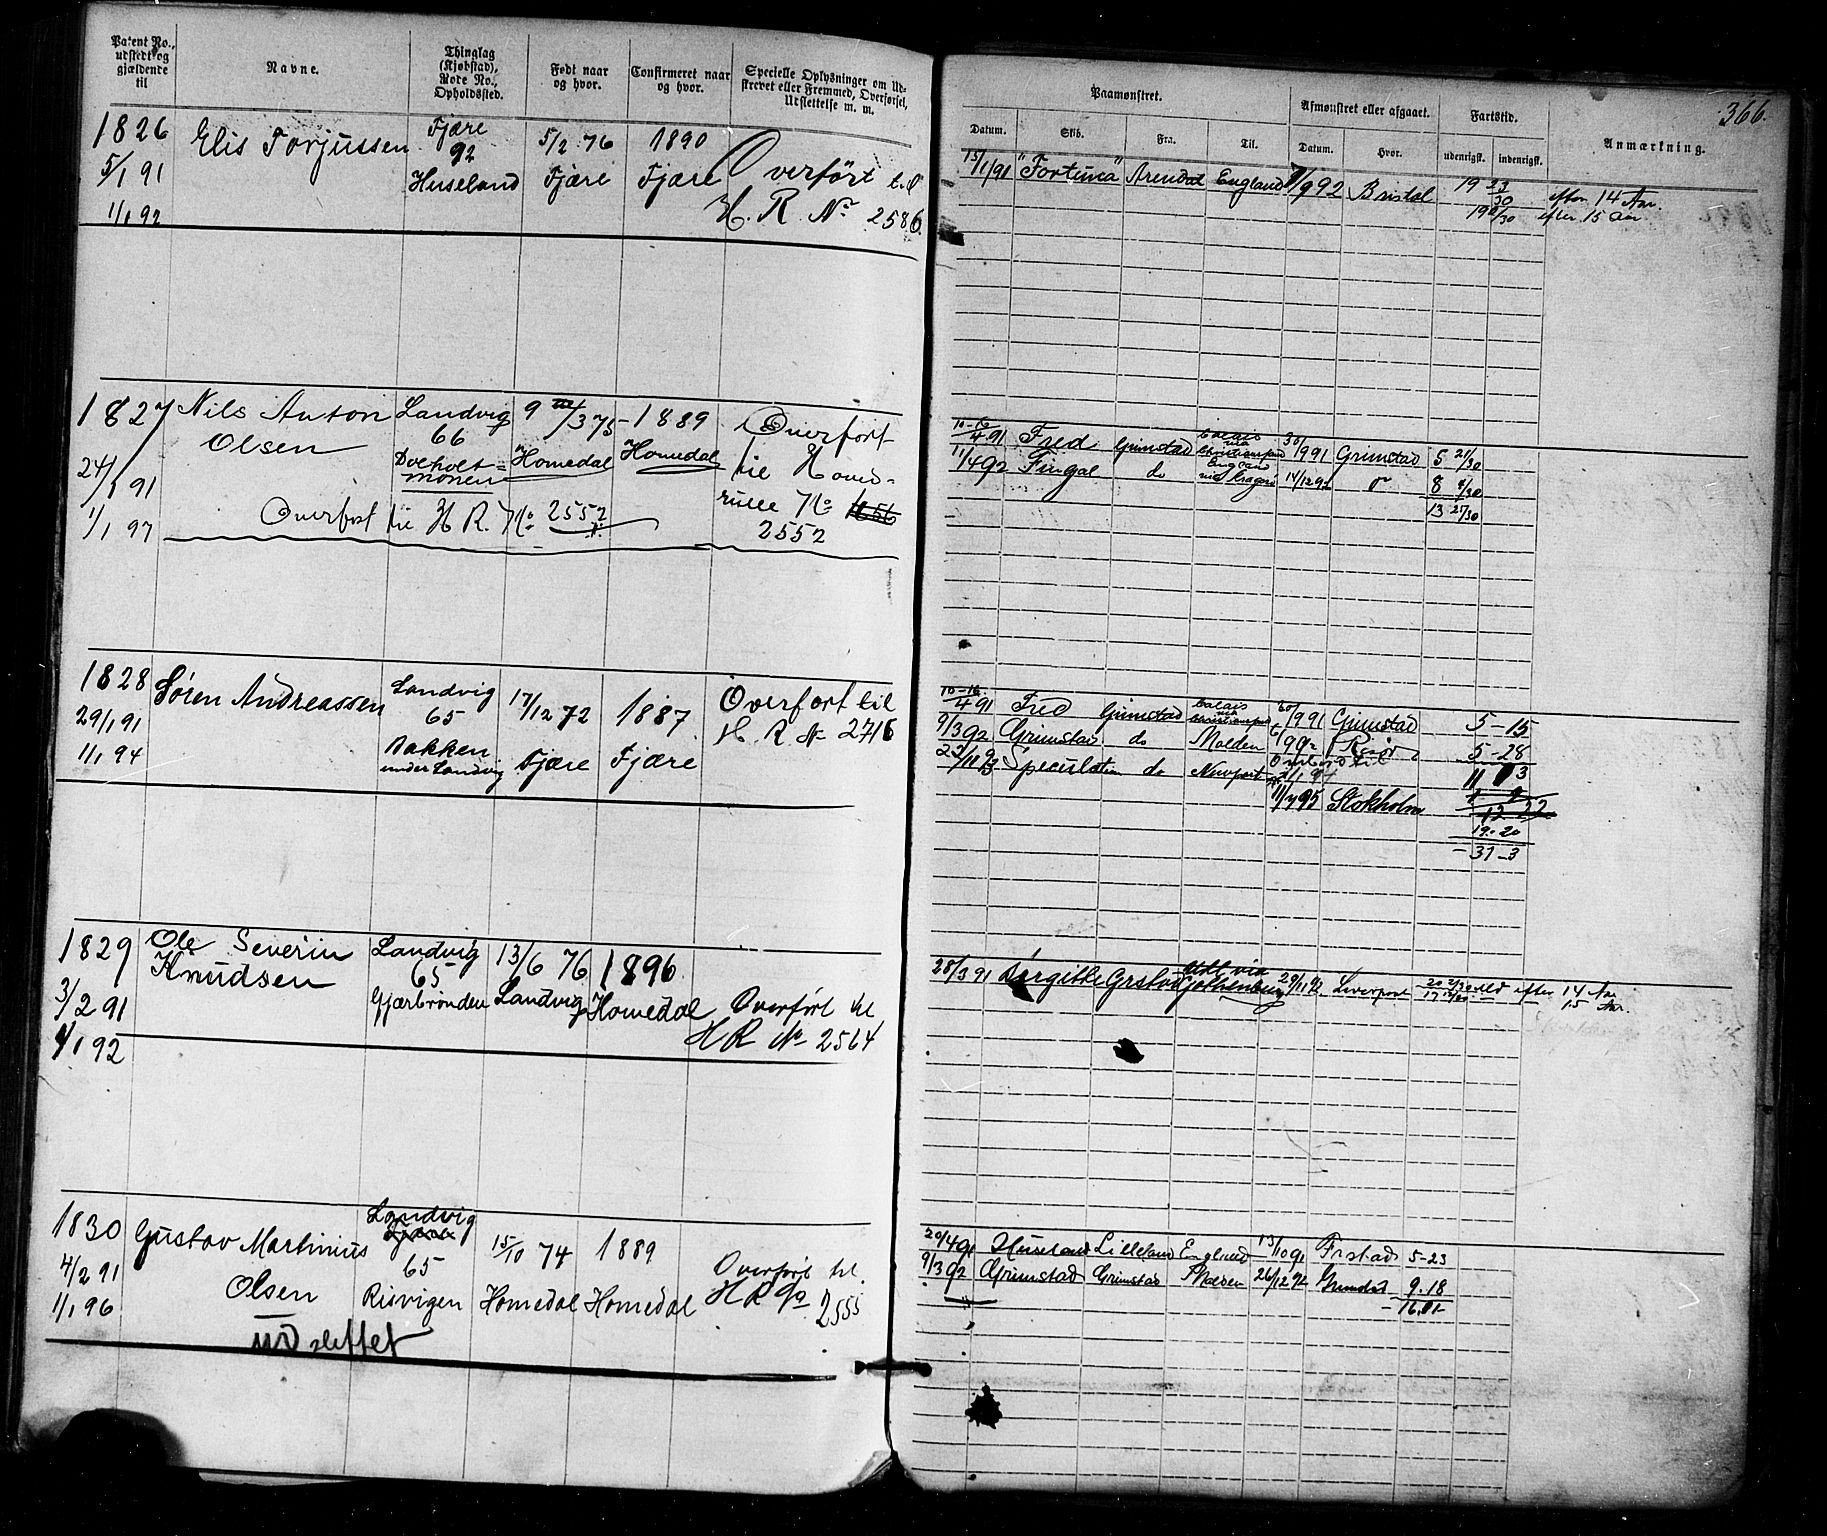 Patent No., udstedt og gjældende til
Navne.
Thinglag (Kjøbstad), Mode No., Opholdssted.
Født naar og hvor.
Confirmeret naar og hvor.
Specielle Oplysninger om Udstrevet eller Fremmed, Overførsel, Udslettelse m. m.
1826 Elis Torjussen Fjære 5/2 76 1890 Overført til
92
5/1 91 Huseland Fjære Fjære H. R. Nr 2586.
1/1 92
1827 Nils Anton Landvig 9/3 75 1889 Overfort
Olsen 66 Homedal Homedal til Hoved-
24/1 91 Dolholt-monen rulle No
1/1 97 Overfort til H R. No 2552 2552
1828 Søren Andreassen Landvig 17/12 72 1887. Overfort til
29/1 91 65 H. R. No 2716
1/1 94 Bakken Fjære Fjære
under Landvig
1829 Ole Severin Landvig 13/6 76 1896.
Knudsen 65
3/2 91 Gjærbrønden Landvig Homedal Overført til
1/1 92 H R No 2564
1830 Gustav Martinius Landvig 15/10 74 1889
4/2 91 Olsen 65 Overført til
1/1 96 Risvigen Homedal Homedal H R No 2555
udslettet
366.
Paamønstret.
Afmønstret eller afgaaet.
Fartstid.
Anmærkning.
Datum. Skib. Fra. Til. Datum. Hvor. udenrigsk. indenrigsk.
15/1 91 "Fortuna" Arendal England 7/9 92 Bristol 19 23/30 efter 14 Aar.
efter 15 Aar
10-16/4 91 Fred Grimstad Calais via 30/9 91 Grimstad 5 21/30
11/4 92 Fingal do England 14/12 92 8 /30
13 27/30
10-16/4 91 Fred Grimstad Calais via /9 91 Grimstad 5-15
9/3 92 Grimstad do Malden 6/9 92 Risør 5-28
22/11 93 Speculation do Newport
11/7 95 Stokholm
19.20
31-3
28/3 91 Birgitte Grstad Gothenburg 29/11 92 Liverpool efter 14 Aar
15 Aar.
20/4 91 Huseland Lillesand England 13/10 91 Frstad 5-23
9/3 92 Grimstad Grimstad Malden 26/12 92 Grimstd 9.18
16.01